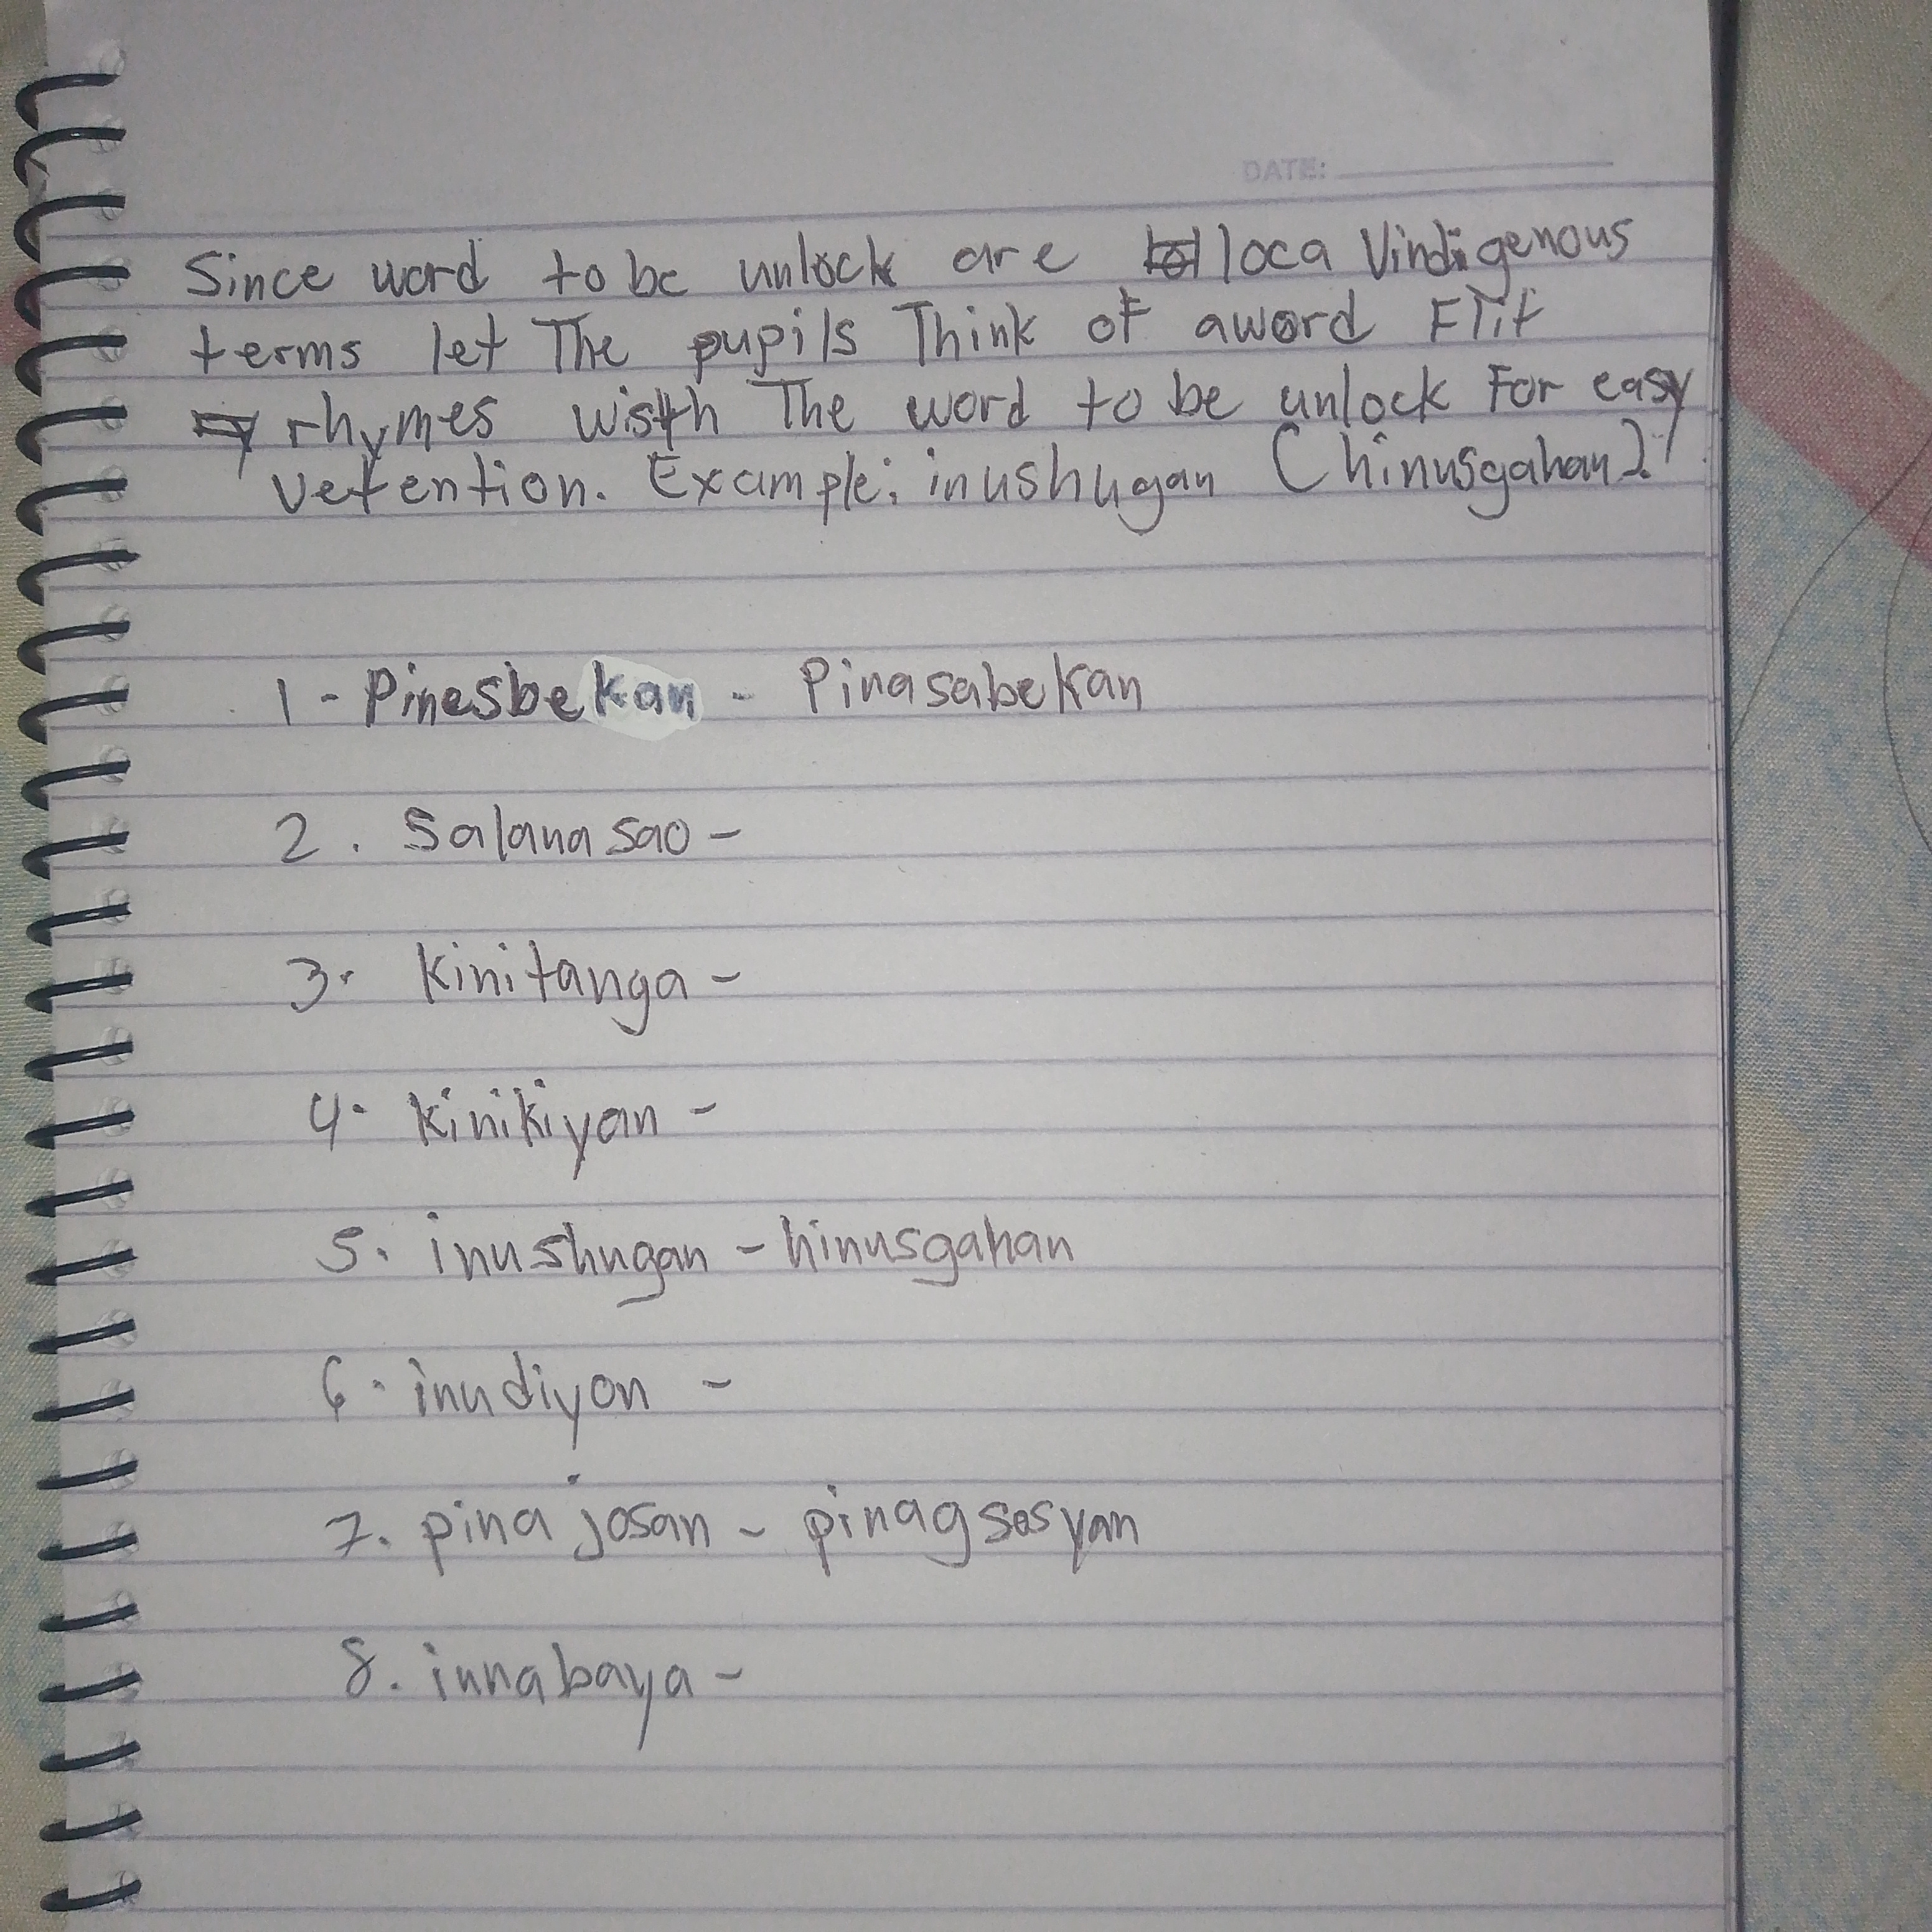 DATE:
Since word to be unlock are loca Vindigenous
terms let The pupils Think of a word FTit
rhymes wisth The word to be unlock For easy
vetention. Example: inushugan (hinusgahan).
1 - Pinesbekan - Pinasabekan
2. Salanasao -
3. Kinitanga -
4. Kinikiyan -
5. inushugan - hinusgahan
6. inudiyon -
7. pinajosan - pinagsosyan
8. innabaya -